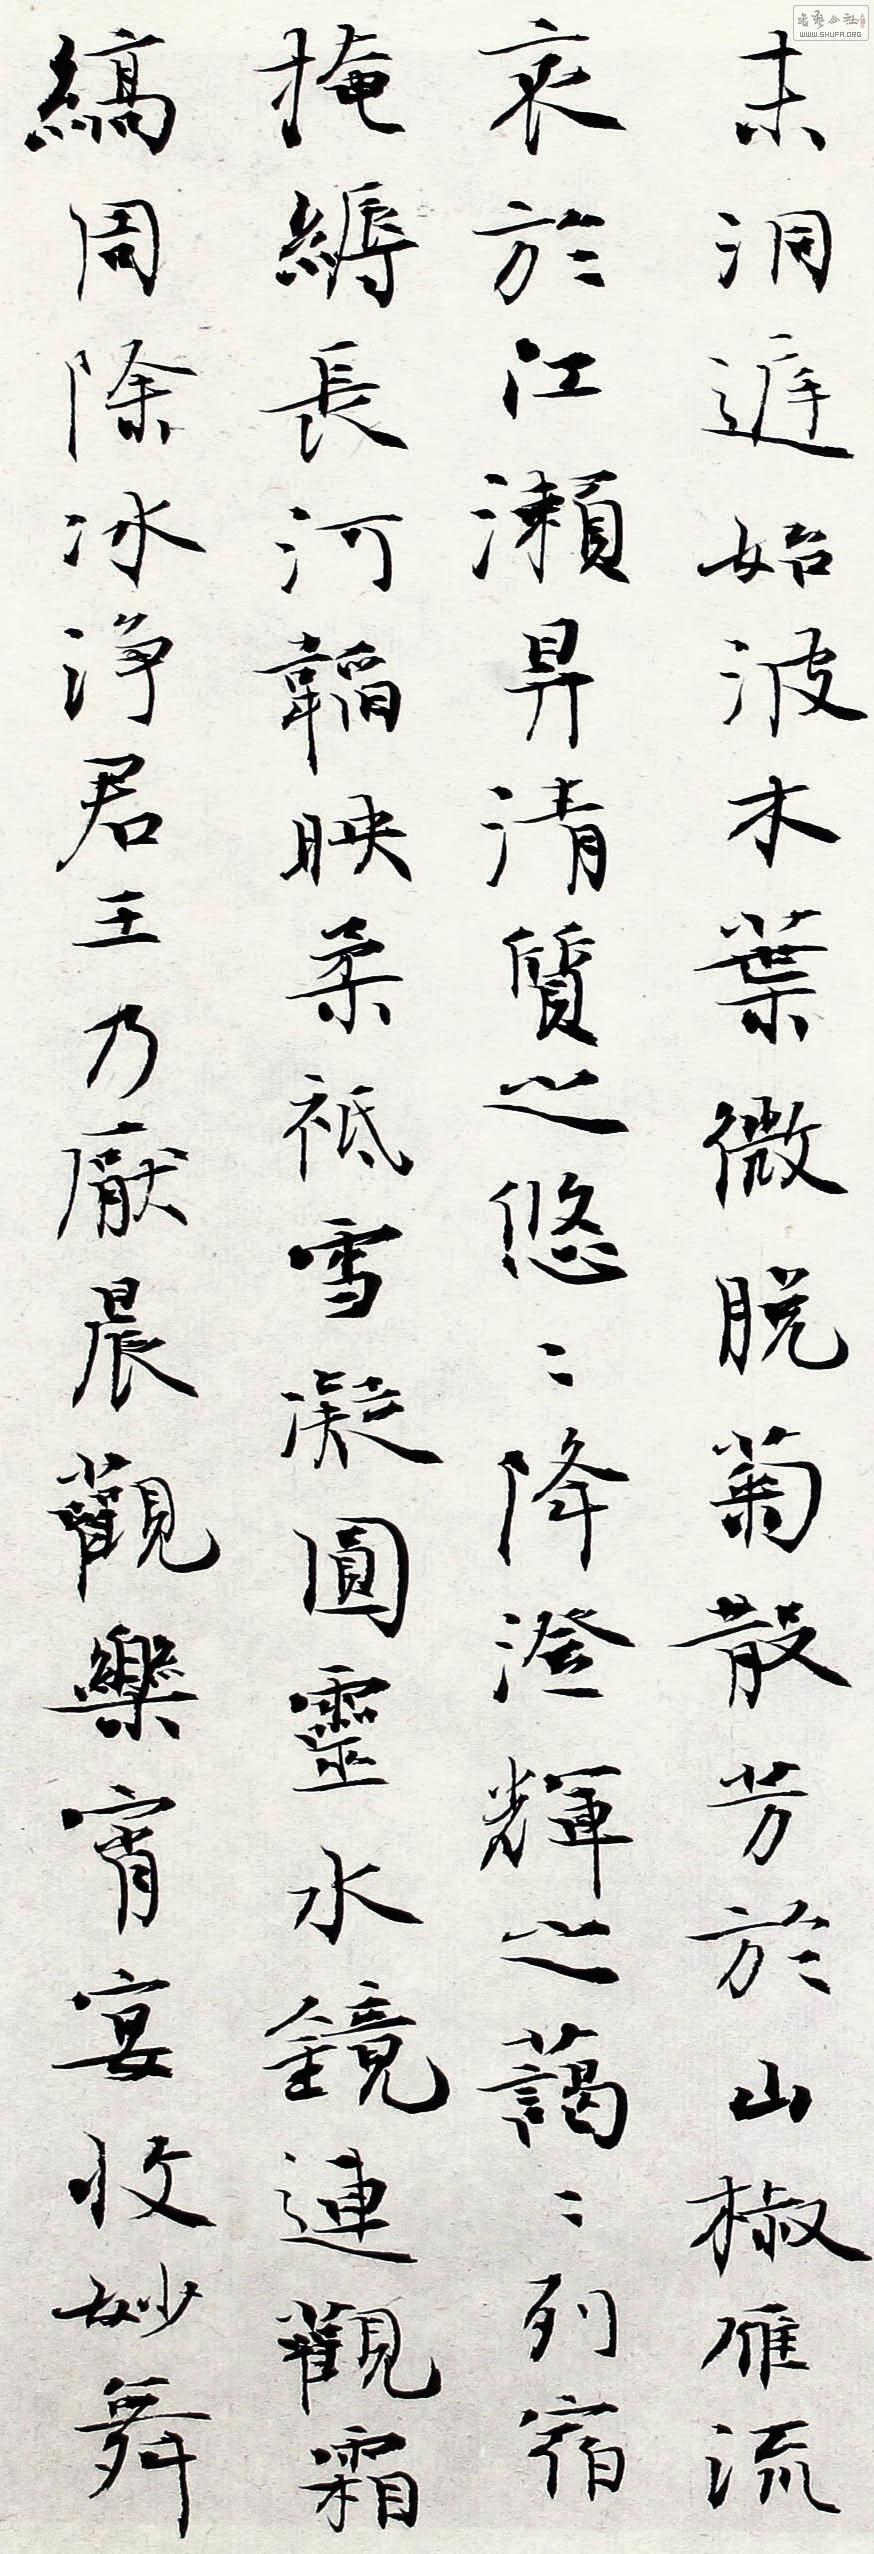 末洞遅始波木葉微脱菊散芳於山椒雁流
哀於江瀬昇清質之悠〻降澄輝之藹〻列宿
掩縟長河韜映柔祇雪凝圓靈水鏡連觀霜
縞周除冰浄君王乃厭晨觀樂宵宴收妙舞
書藝公社
WWW.SHUFA.ORG